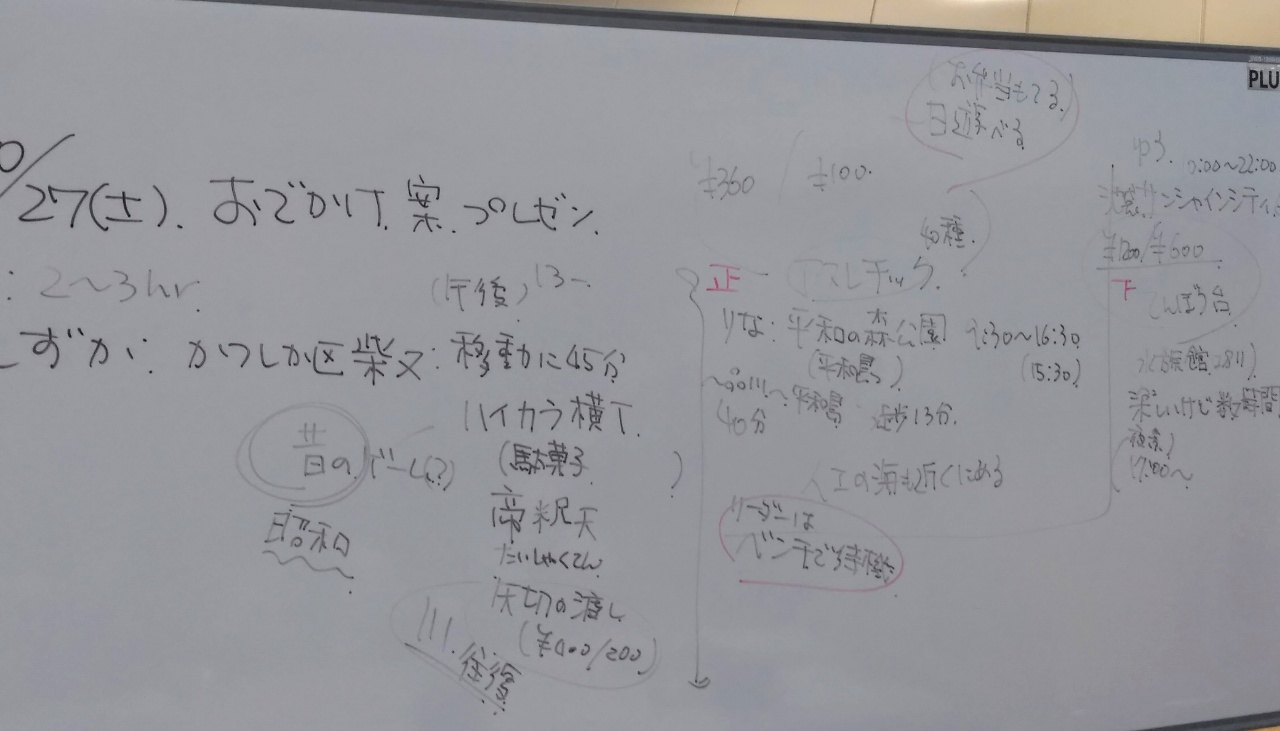 0/27(土). おでかけ 案. プレゼン.
: 2〜3hr.
(午後) 13〜
しずか: かつしか区 柴又: 移動に45分
ハイカラ横丁.
昔の ゲーム(?)
(駄菓子 )
昭和
帝釈天
たいしゃくてん
矢切の渡し
(¥400/200)
川. 往復
お弁当もてる
日遊べる
¥360 / ¥100.
40種.
正 アスレチック.
りな: 平和の森公園 9:30〜16:30
(平和島) (15:30)
〜品川〜平和島 徒歩13分.
40分
の海も近くにある
リーダーは
ベンチで待機
ゆう. 0:00〜22:00
池袋サンシャインシティ
¥1200/¥600
下 てんぼう台.
水族館
楽しいけど数時間
夜景)
17:00〜
PLU